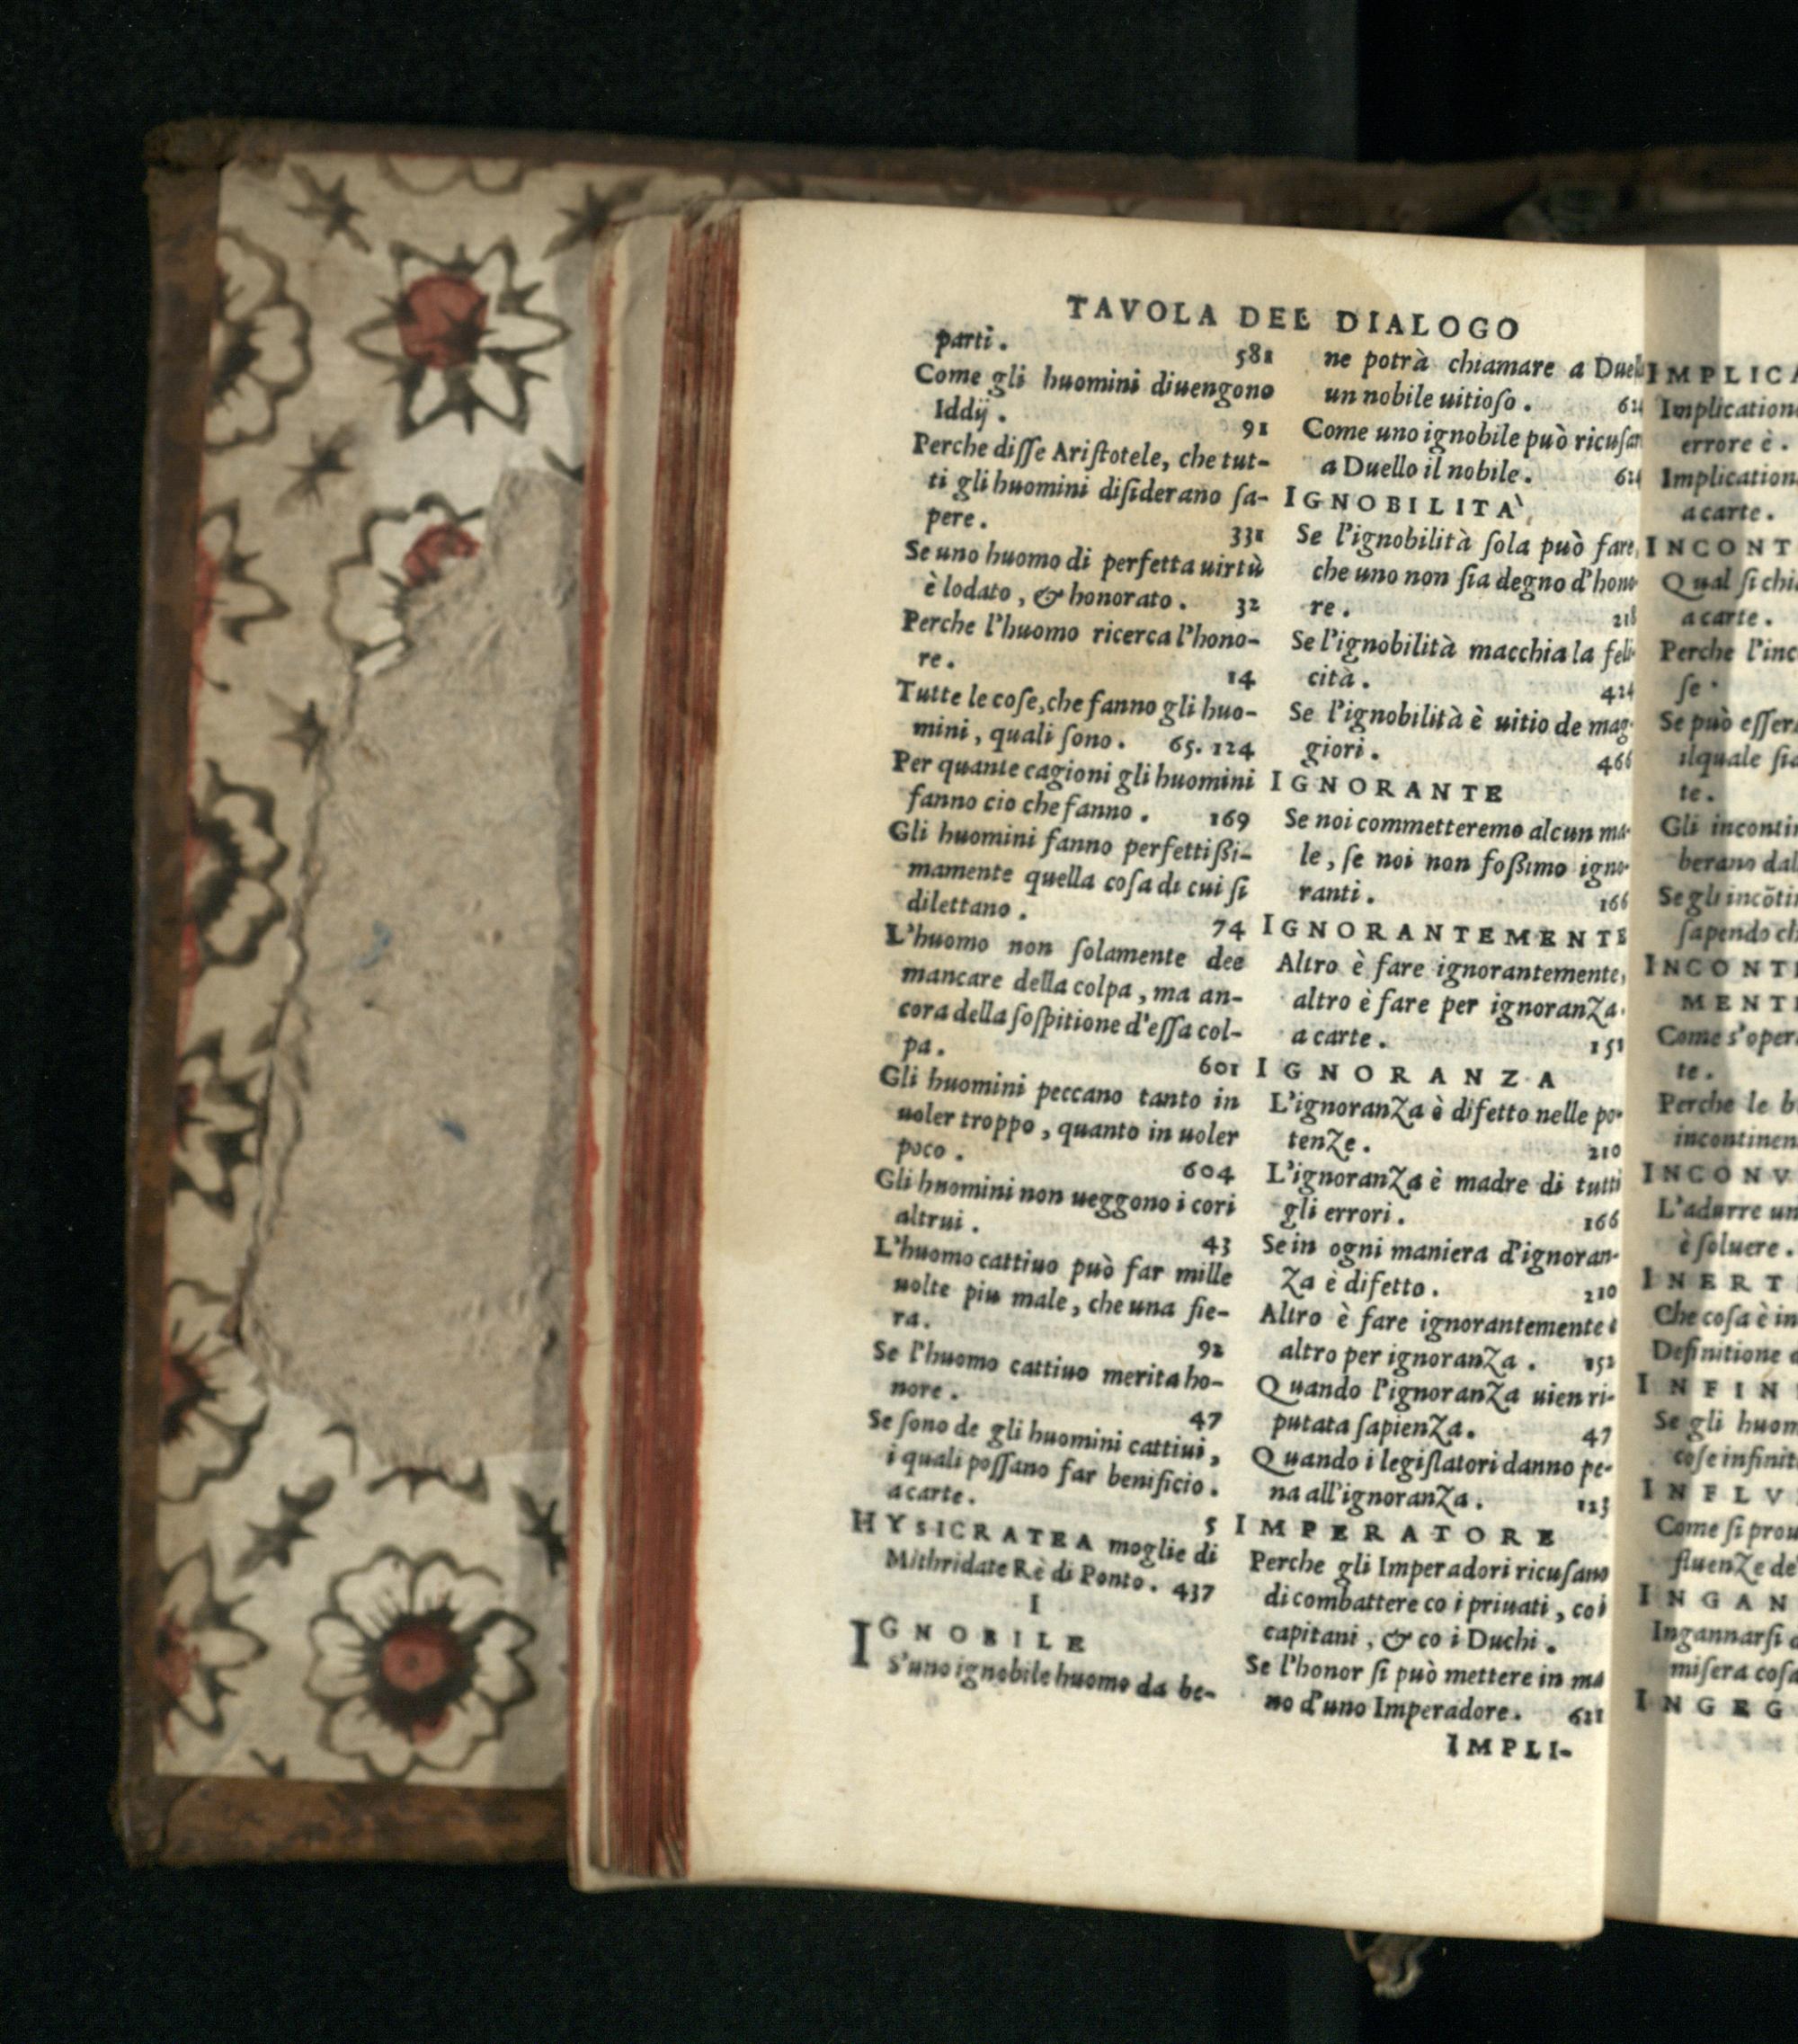 TAVOLA DEL DIALOGO
parti. 581
Come gli huomini diuengono
Iddij. 91
Perche diſſe Ariſtotele, che tut-
ti gli huomini diſiderano ſa-
pere. 331
Se uno huomo di perfetta uirtù
è lodato, & honorato. 32
Perche l'huomo ricerca l'hono-
re. 14
Tutte le coſe, che fanno gli huo-
mini, quali ſono. 65. 124
Per quante cagioni gli huomini
fanno cio che fanno. 169
Gli huomini fanno perfettißi-
mamente quella coſa di cui ſi
dilettano. 74
L'huomo non ſolamente dee
mancare della colpa, ma an-
cora della ſoſpitione d'eſſa col-
pa. 601
Gli huomini peccano tanto in
uoler troppo, quanto in uoler
poco. 604
Gli huomini non ueggono i cori
altrui. 43
L'huomo cattiuo può far mille
uolte piu male, che una fie-
ra. 92
Se l'huomo cattiuo merita ho-
nore. 47
Se ſono de gli huomini cattiui,
i quali poſſano far benificio.
a carte. 5
HYSICRATEA moglie di
Mithridate Rè di Ponto. 437
I
IGNOBILE
S'uno ignobile huomo da be-
ne potrà chiamare a Duello
un nobile uitioſo.
Come uno ignobile può ricuſar
a Duello il nobile.
IGNOBILITA`
Se l'ignobilità ſola può fare,
che uno non ſia degno d'hono-
re. 218
Se l'ignobilità macchia la feli-
cità. 424
Se l'ignobilità è uitio de mag-
giori. 466
IGNORANTE
Se noi commetteremo alcun ma-
le, ſe noi non foßimo igno-
ranti. 166
IGNORANTEMENTE
Altro è fare ignorantemente,
altro è fare per ignoranza.
a carte. 151
IGNORANZA
L'ignoranza è difetto nelle po-
tenze. 210
L'ignoranza è madre di tutti
gli errori. 166
Se in ogni maniera d'ignoran-
za è difetto. 210
Altro è fare ignorantemente
altro per ignoranza. 152
Quando l'ignoranza uien ri-
putata ſapienza. 47
Quando i legiſlatori danno pe-
na all'ignoranza. 123
IMPERATORE
Perche gli Imperadori ricuſano
di combattere co i priuati, co i
capitani, & co i Duchi.
Se l'honor ſi può mettere in ma
no d'uno Imperadore. 621
IMPLI-
IMPLICA
Implication
errore è.
Implication
a carte.
INCONT
Qual ſi chi
a carte.
Perche l'inc
ſe.
Se può eſſer
ilquale ſia
te.
Gli incontin
berano dal
Se gli incõtin
ſapendo ch
INCONTI
MENTE
Come s'oper
te.
Perche le b
incontinen
INCONV
L'adurre un
è ſoluere.
INERT
Che coſa è in
Definitione
INFIN
Se gli huom
coſe infinit
INFLV
Come ſi prou
fluenze de
INGAN
Ingannarſi
miſera coſa
INGEG